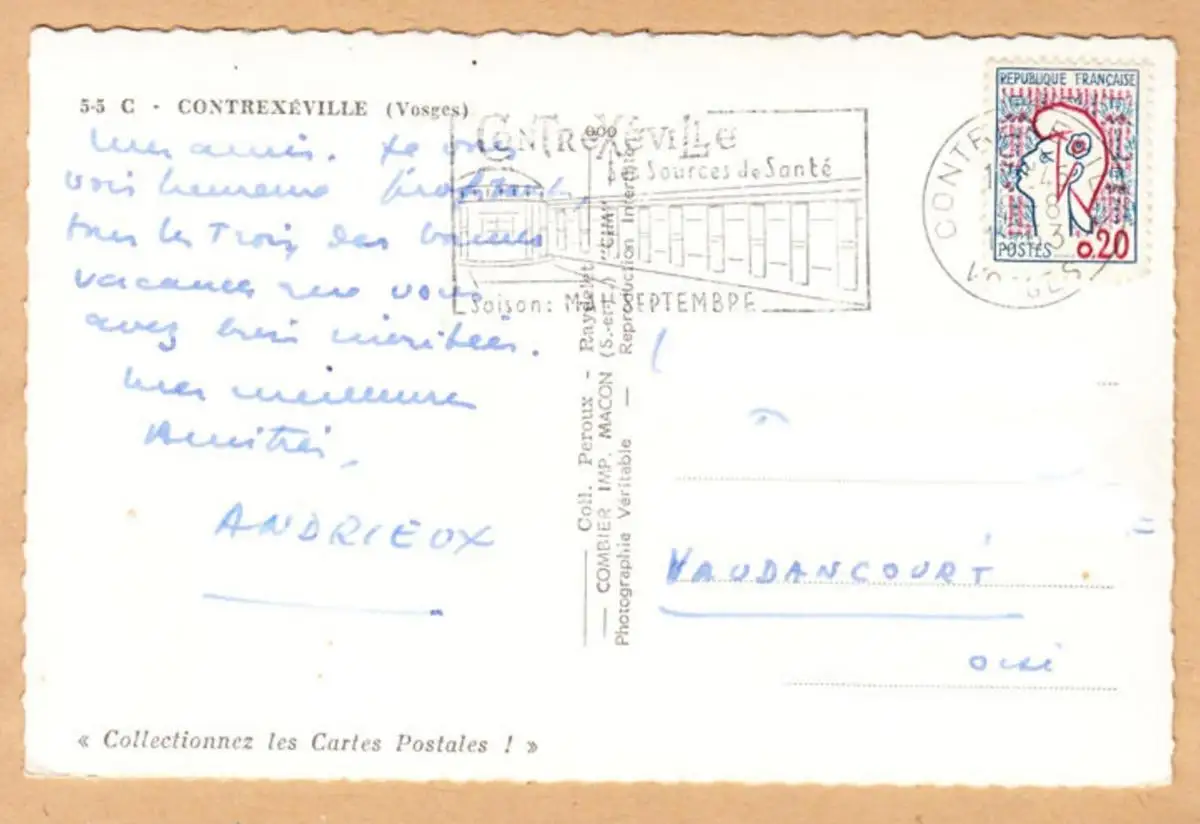 5-5 C - CONTREXÉVILLE (Vosges)
mes amis. Je vous
vois heureux profitant,
tous les Trois des bonnes
vacances que vous
avez bien méritées.
mes meilleures
Amitiés,
ANDRIEUX
« Collectionnez les Cartes Postales ! »
CONTREXÉVILLE
Sources de Santé
Saison: MAI-SEPTEMBRE
Coll. Peroux - Rayaglet
— COMBIER IMP. MACON (S.-et-L.) "CIM"
Photographie Véritable — Reproduction Interdite
REPUBLIQUE FRANÇAISE
POSTES 0,20
VOSGES
VAUDANCOURT
oise